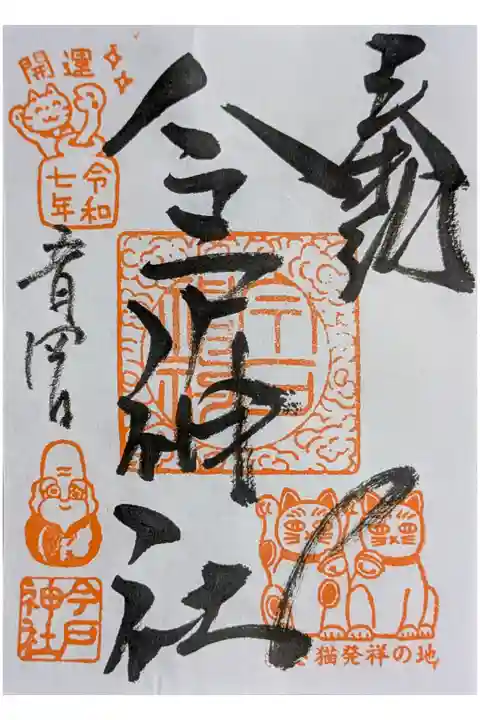 奉拝
猫発祥の地
今戸神社
開運
令和
七年
今戸
神社